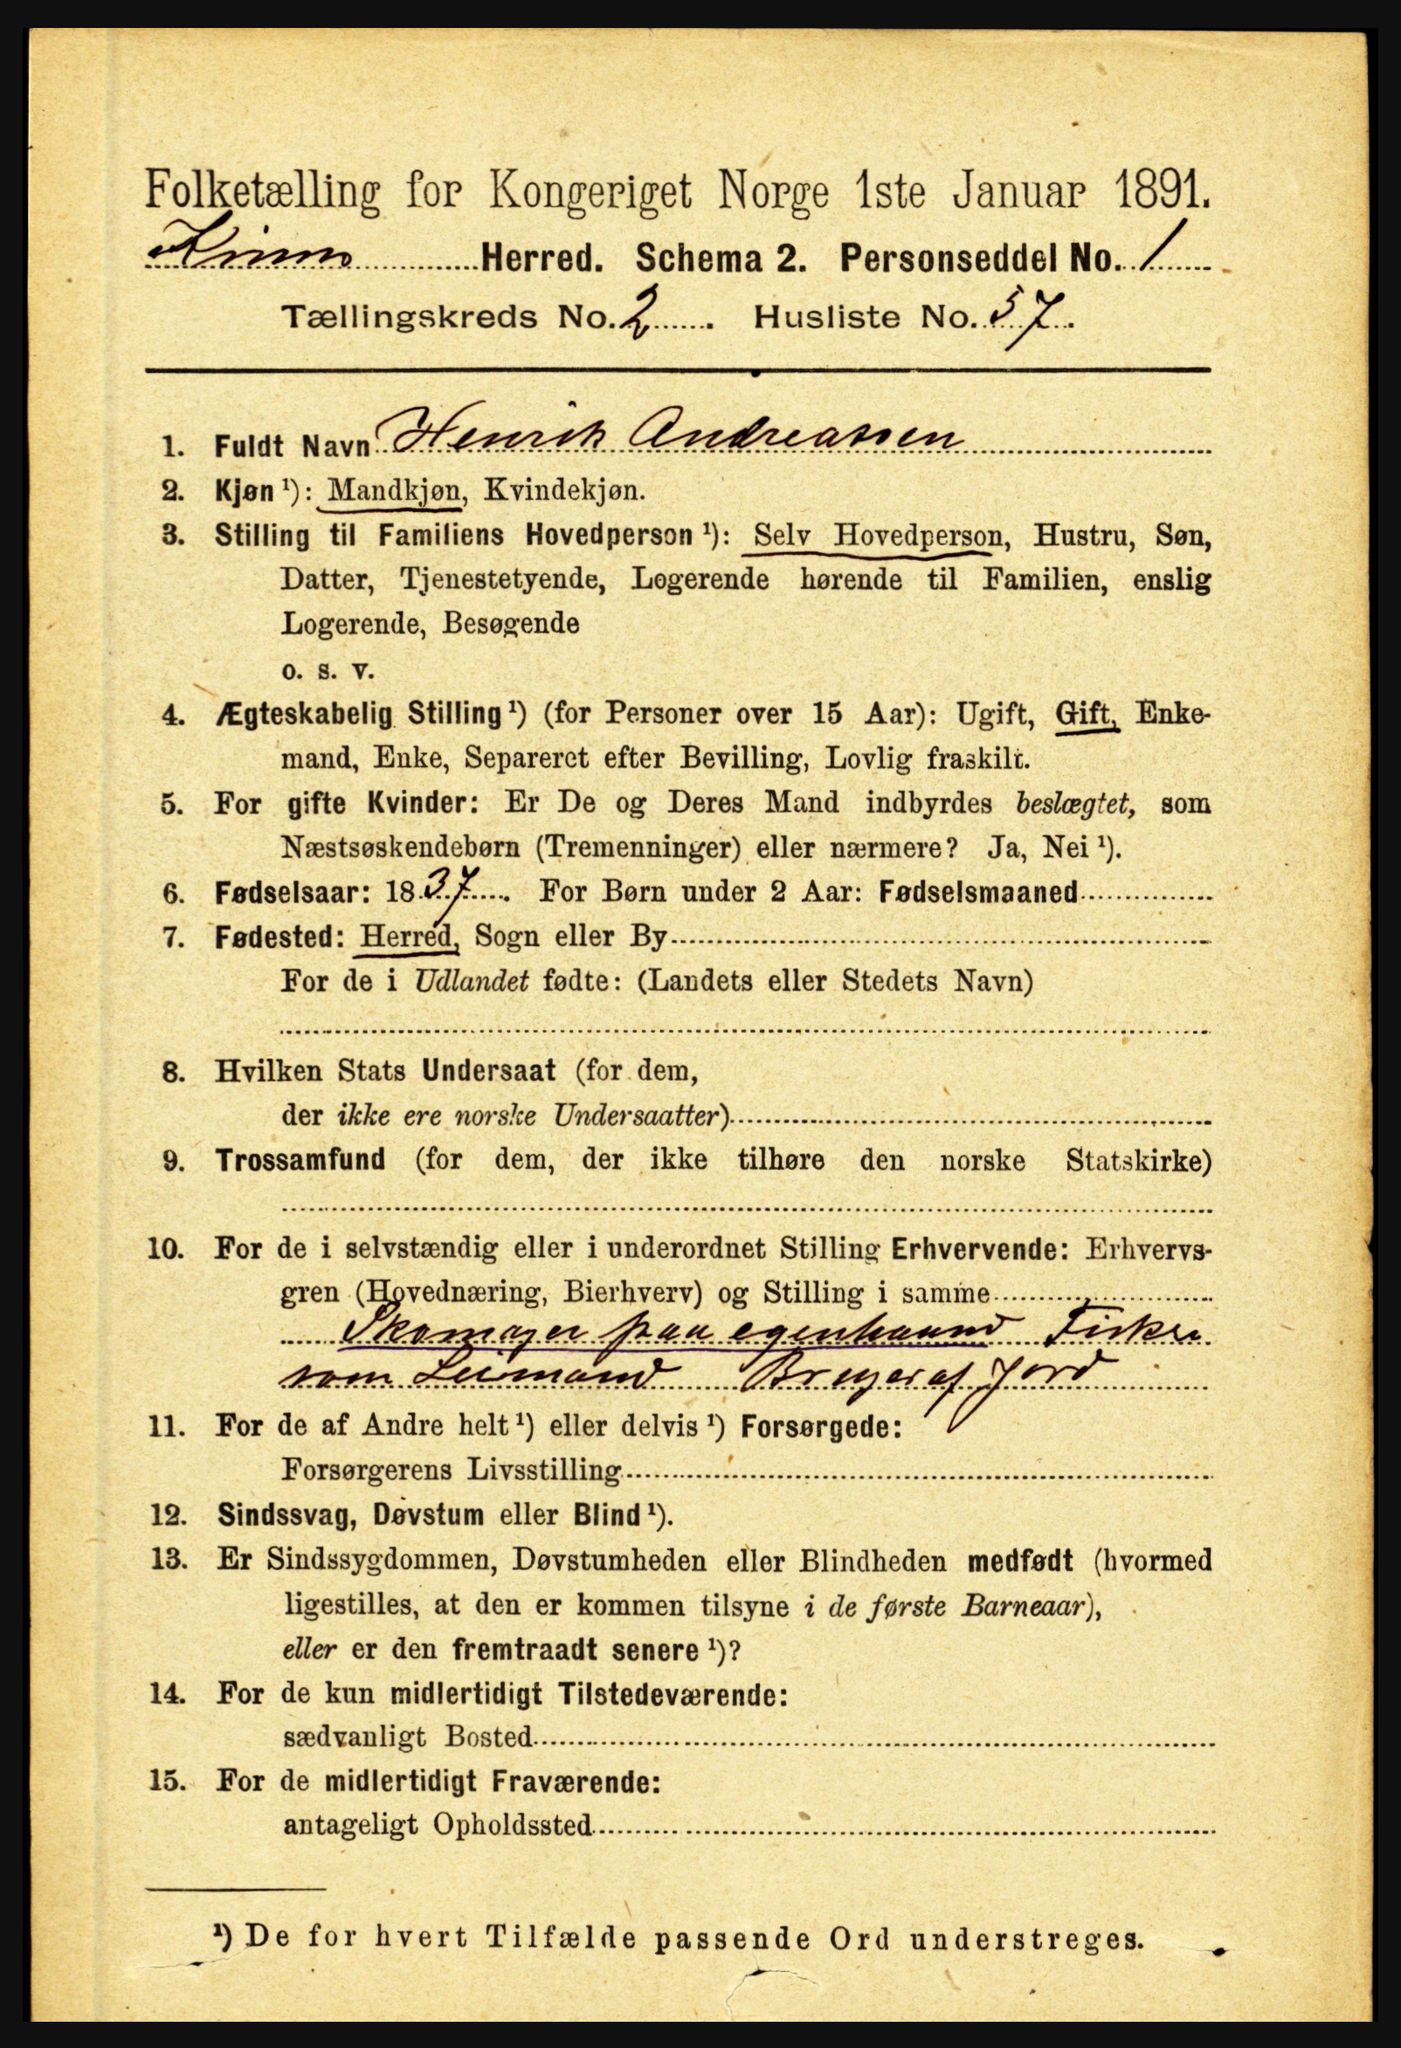 Folketælling for Kongeriget Norge 1ste Januar 1891.
Kinn Herred. Schema 2. Personseddel No. 1
Tællingskreds No. 2. Husliste No. 57.
1. Fuldt Navn Henrik Andreassen
2. Kjøn ¹): Mandkjøn, Kvindekjøn.
3. Stilling til Familiens Hovedperson ¹): Selv Hovedperson, Hustru, Søn,
Datter, Tjenestetyende, Logerende hørende til Familien, enslig
Logerende, Besøgende
o. s. v.
4. Ægteskabelig Stilling ¹) (for Personer over 15 Aar): Ugift, Gift, Enke-
mand, Enke, Separeret efter Bevilling, Lovlig fraskilt.
5. For gifte Kvinder: Er De og Deres Mand indbyrdes beslægtet, som
Næstsøskendebørn (Tremenninger) eller nærmere? Ja, Nei ¹).
6. Fødselsaar: 1837. For Børn under 2 Aar: Fødselsmaaned
7. Fødested: Herred, Sogn eller By
For de i Udlandet fødte: (Landets eller Stedets Navn)
8. Hvilken Stats Undersaat (for dem,
der ikke ere norske Undersaatter)
9. Trossamfund (for dem, der ikke tilhøre den norske Statskirke)
10. For de i selvstændig eller i underordnet Stilling Erhvervende: Erhvervs-
gren (Hovednæring, Bierhverv) og Stilling i samme
Skomager paa egenhaand Fisker
som Leimand Bruger af Jord
11. For de af Andre helt ¹) eller delvis ¹) Forsørgede:
Forsørgerens Livsstilling
12. Sindssvag, Døvstum eller Blind ¹).
13. Er Sindssygdommen, Døvstumheden eller Blindheden medfødt (hvormed
ligestilles, at den er kommen tilsyne i de første Barneaar),
eller er den fremtraadt senere ¹)?
14. For de kun midlertidigt Tilstedeværende:
sædvanligt Bosted
15. For de midlertidigt Fraværende:
antageligt Opholdssted
¹) De for hvert Tilfælde passende Ord understreges.